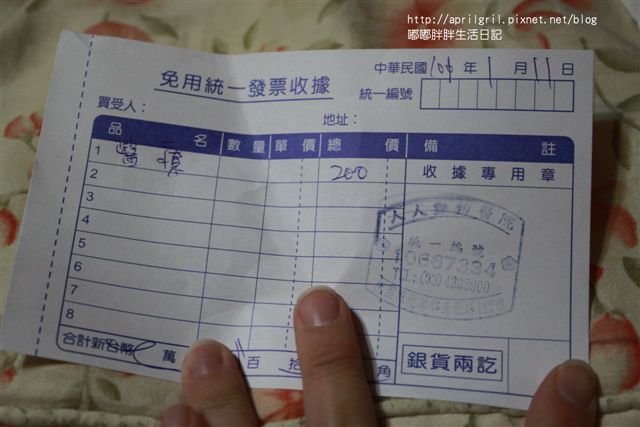 http://aprilgril.pixnet.net/blog
嘟嘟胖胖生活日記
免用統一發票收據
中華民國 年 1 月 11 日
統一編號
買受人：
地址：
品 名 數量 單價 總 價 備 註
1 醫療
2 200 收據專用章
3
4
5
6
7
8
人人動物醫院
統一編號
TEL:(03)
合計新台幣 萬 百 拾 角
銀貨兩訖